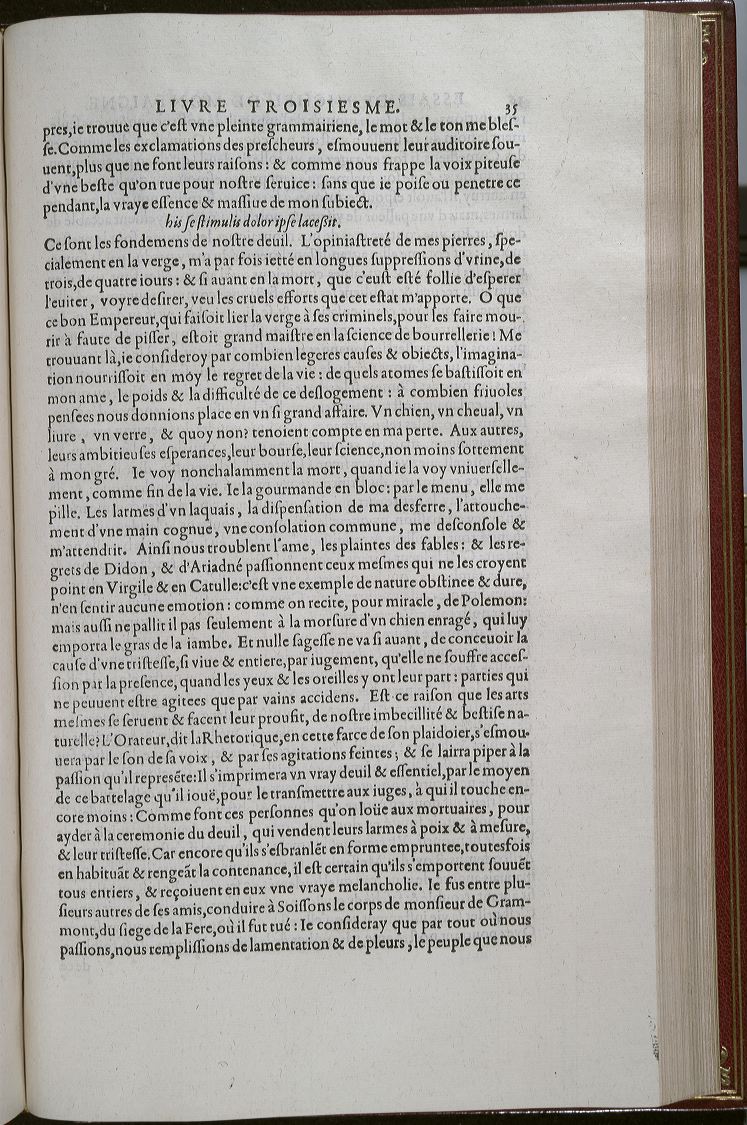 LIVRE TROISIESME. 35
pres,ie trouue que c'eſt vne pleinte grammairiene, le mot & le ton me bleſ-
ſe. Comme les exclamations des preſcheurs , eſmouuent leur auditoire ſou-
uent,plus que ne font leurs raiſons : & comme nous frappe la voix piteuſe
d'vne beſte qu'on tue pour noſtre ſeruice : ſans que ie poiſe ou penetre ce
pendant,la vraye eſſence & maſſiue de mon ſubiect.
his ſe ſtimulis dolor ipſe laceßit.
Ce ſont les fondemens de noſtre deuil. L'opiniaſtreté de mes pierres , ſpe-
cialement en la verge, m'a par fois ietté en longues ſuppreſſions d'vrine,de
trois,de quatre iours : & ſi auant en la mort , que c'euſt eſté follie d'eſperer
l'euiter , voyre deſirer, veu les cruels efforts que cet eſtat m'apporte. O que
ce bon Empereur,qui faiſoit lier la verge à ſes criminels,pour les faire mou-
rir à faute de piſſer , eſtoit grand maiſtre en la ſcience de bourrellerie ! Me
trouuant là,ie conſideroy par combien legeres cauſes & obiects, l'imagina-
tion nourriſſoit en moy le regret de la vie : de quels atomes ſe baſtiſſoit en
mon ame , le poids & la difficulté de ce deſlogement : à combien friuoles
penſees nous donnions place en vn ſi grand affaire. Vn chien, vn cheual, vn
liure , vn verre , & quoy non? tenoient compte en ma perte. Aux autres,
leurs ambitieuſes eſperances,leur bourſe,leur ſcience,non moins ſottement
à mon gré. Ie voy nonchalamment la mort , quand ie la voy vniuerſelle-
ment , comme fin de la vie. Ie la gourmande en bloc : par le menu , elle me
pille. Les larmes d'vn laquais, la diſpenſation de ma desferre, l'attouche-
ment d'vne main cognue, vne conſolation commune , me deſconſole &
m'attendrit. Ainſi nous troublent l'ame , les plaintes des fables : & les re-
grets de Didon , & d'Ariadné paſſionnent ceux meſmes qui ne les croyent
point en Virgile & en Catulle:c'eſt vne exemple de nature obſtinee & dure,
n'en ſentir aucune emotion : comme on recite, pour miracle , de Polemon:
mais auſſi ne pallit il pas ſeulement à la morſure d'vn chien enragé , qui luy
emporta le gras de la iambe. Et nulle ſageſſe ne va ſi auant , de conceuoir la
cauſe d'vne triſteſſe,ſi viue & entiere,par iugement, qu'elle ne ſouffre acceſ-
ſion par la preſence, quand les yeux & les oreilles y ont leur part : parties qui
ne peuuent eſtre agitees que par vains accidens. Eſt ce raiſon que les arts
meſmes ſe ſeruent & facent leur proufit, de noſtre imbecillité & beſtiſe na-
turelle? L'Orateur,dit la Rhetorique,en cette farce de ſon plaidoier,s'eſmou-
uera par le ſon de ſa voix , & par ſes agitations feintes ; & ſe lairra piper à la
paſſion qu'il repreſēte: Il s'imprimera vn vray deuil & eſſentiel,par le moyen
de ce battelage qu'il iouë,pour le tranſmettre aux iuges, à qui il touche en-
core moins : Comme font ces perſonnes qu'on loüe aux mortuaires , pour
ayder à la ceremonie du deuil , qui vendent leurs larmes à poix & à meſure,
& leur triſteſſe. Car encore qu'ils s'eſbranlēt en forme empruntee,toutesfois
en habituāt & rengeāt la contenance, il eſt certain qu'ils s'emportent ſouuēt
tous entiers , & reçoiuent en eux vne vraye melancholie. Ie fus entre plu-
ſieurs autres de ſes amis,conduire à Soiſſons le corps de monſieur de Gram-
mont,du ſiege de la Fere,où il fut tué : Ie conſideray que par tout où nous
paſſions,nous rempliſſions de lamentation & de pleurs , le peuple que nous